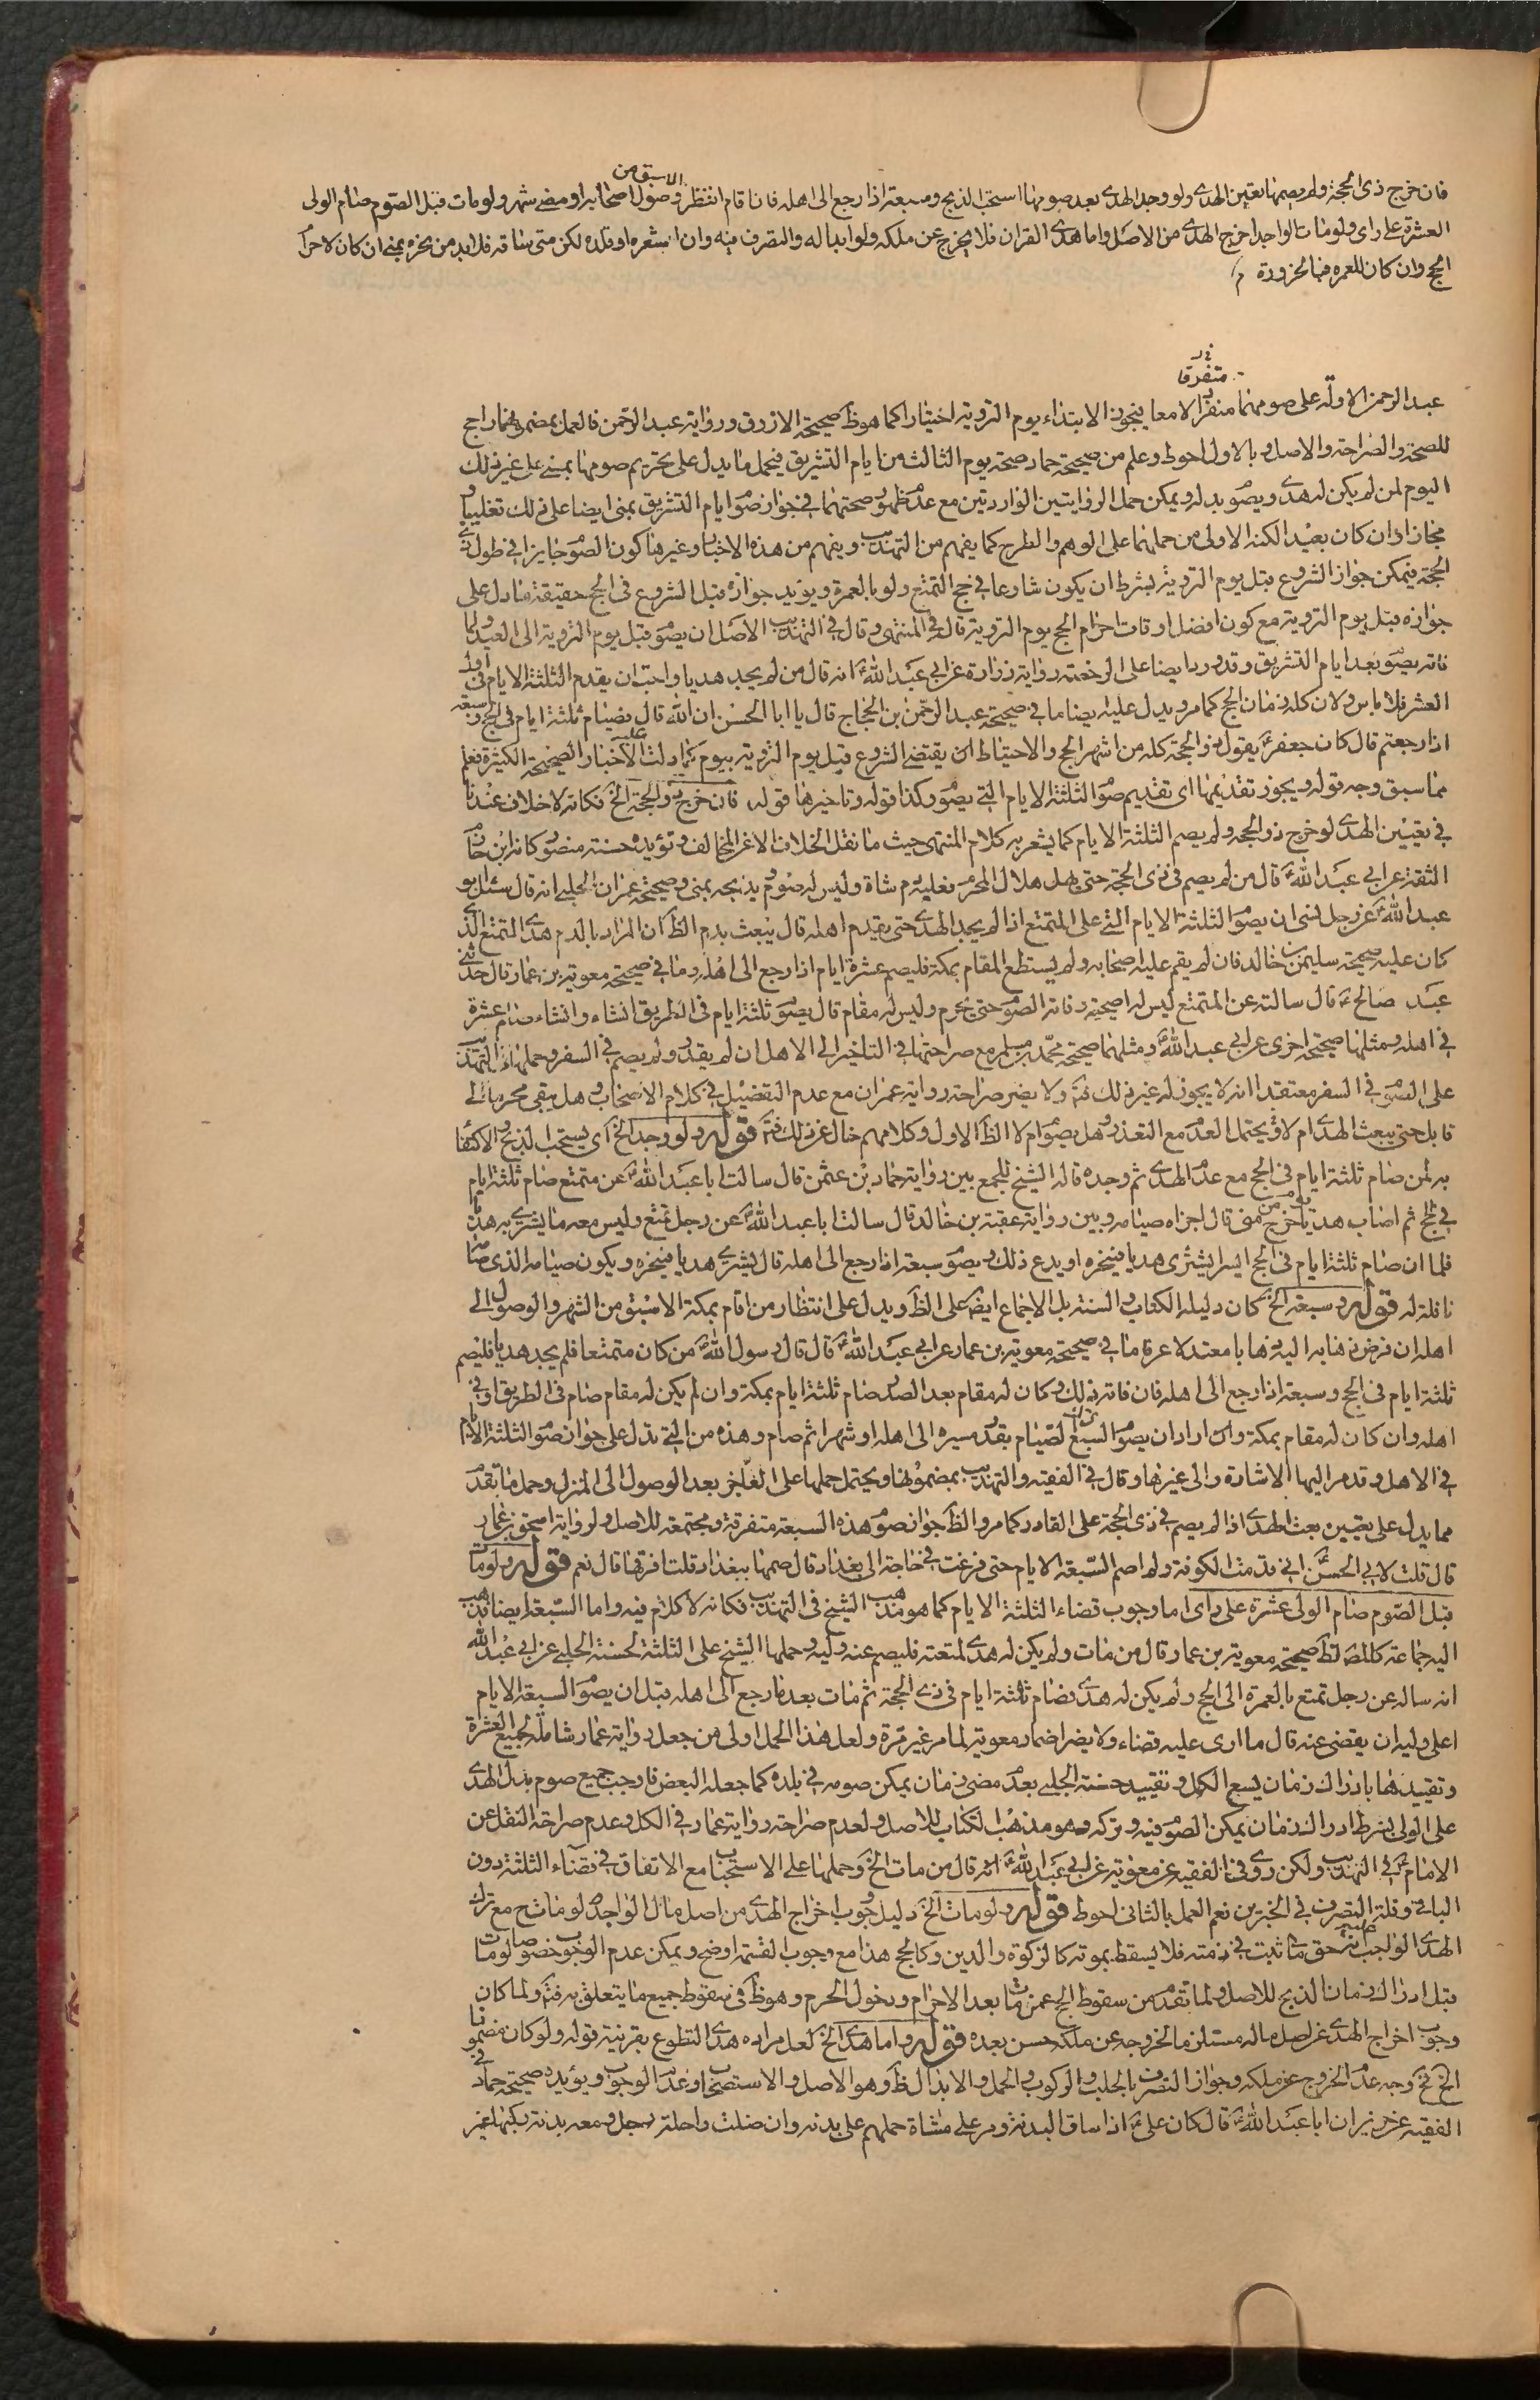 الاسبق من
فان خرج ذى الحجة ولم يصمها تعين الهدى ولو وجد الهدى بعد صومها استحب الذبح وسبعة اذا رجع الى اهله فان اقام انتظر وصول اصحابه او مضى شهر ولو مات قبل الصوم صام الولى
العشرة على راى ولو مات الواجد اخرج الهدى من الاصل واما هدى القران فلا يخرج عن ملكه وله ابداله والتصرف فيه وان اشعره او قلده لكن متى ساقه فلا بد من نحره بمنى ان كان لاحرام
الحج وان كان للعمرة فبالحزورة
متفرقا
عبد الرحمن الاولة على صومهما منفردا لا معا فيجوز الابتداء يوم التروية اختيارا كما هو ظ صحيحة الازرق ورواية عبد الرحمن فالعمل بمضمونهما راجح
للصحة والصراحة والاصل وبالاول احوط وعلم من صحيحة حماد صحة يوم الثالث من ايام التشريق فيحمل ما يدل على تحريم صومها بمنى على غير ذلك
اليوم لمن لم يكن له هدى ويصوم بدله ويمكن حمل الروايتين الواردتين مع عدم ظهور صحتهما فى جواز صوم ايام التشريق بمنى ايضا على ذلك تغليبا و
مجازا وان كان بعيد الكنه الاولى من حملهما على الوهم والطرح كما يفهم من التهذيب ويفهم من هذه الاخبار وغيرها كون الصوم جايزا فى طول ذى
الحجة فيمكن جواز الشروع قبل يوم التروية بشرط ان يكون شارعا فى حج التمتع ولو بالعمرة ويؤيد جوازه قبل الشروع فى الحج حقيقة ما دل على
جوازه قبل يوم التروية مع كون افضل اوقات احرام الحج يوم التروية قال فى المنتهى وقال فى التهذيب الاصل ان يصوم قبل يوم التروية الى العيد ولما
فاته يصوم بعد ايام التشريق وقد ورد ايضا على الرخصة رواية زرارة عن ابى عبد الله ع انه قال من لم يجد هديا واحب ان يقدم الثلثة الايام فى اول
العشر فلا باس ولان كله زمان الحج كما مر ويدل عليه ايضا ما فى صحيحة عبد الرحمن بن الحجاج قال يا ابا الحسن ان الله قال فصيام ثلثة ايام فى الحج وسبعة
اذا رجعتم قال كان جعفر ع يقول ذو الحجة كله من اشهر الحج والاحتياط ان يقتضى الشروع قبل يوم التروية بيوم كما دلت عليه الاخبار الصحيحة الكثيرة فعلم
مما سبق وجه قوله ويجوز تقديمها اى تقديم صوم الثلثة الايام التى يصوم وكذا قوله وتاخيرها قوله فان خرج ذو الحجة الخ فكانه لا خلاف عندنا
فى تعيين الهدى لو خرج ذو الحجة ولم يصم الثلثة الايام كما يشعر به كلام المنتهى حيث ما نقل الخلاف الا عن المخالف وتؤيده حسنة منصور كانه ابن حازم
الثقة عن ابى عبد الله ع قال من لم يصم فى ذى الحجة حتى يهل هلال المحرم فعليه دم شاة وليس له صوم ويذبحه بمنى وصحيحة عمران الحلبى انه قال سئل ابو
عبد الله ع عن رجل نسى ان يصوم الثلثة الايام التى على المتمتع اذا لم يجد الهدى حتى يقدم اهله قال يبعث بدم الظ ان المراد بالدم هدى التمتع الذى
كان عليه صحيحة سليمن بن خالد فان لم يقم عليه اصحابه ولم يستطع المقام بمكة فليصم عشرة ايام اذا رجع الى اهله وما فى صحيحة معوية بن عمار قال حدثنى
عبد صالح ع قال سالته عن المتمتع ليس له اضحية وفاته الصوم حتى يخرج وليس له مقام قال يصوم ثلثة ايام فى الطريق ان شاء وان شاء صام عشرة
فى اهله ومثلها صحيحة اخرى عن ابى عبد الله ع ومثلهما صحيحة محمد بن مسلم مع صراحتها فى التاخير الى الاهل ان لم يقدر ولم يصم فى السفر وحملها فى التهذيب
على الصوم فى السفر معتقدا انه لا يجوز له غير ذلك فتم ولا يضر صراحة رواية عمران مع عدم التفصيل فى كلام الاصحاب وهل يبقى محرما الى
قابل حتى يبعث الهدى ام لا ويحتمل العدم مع التعذر وهل يصوم ام لا الظ الاول وكلامهم خال عن ذلك فتم قوله ولو وجد الخ اى يستحب الذبح والاكتفاء
به لمن صام ثلثة ايام فى الحج مع عدم الهدى ثم وجده قاله الشيخ للجمع بين رواية حماد بن عثمن قال سالت ابا عبد الله ع عن متمتع صام ثلثة ايام
فى الحج ثم اصاب هديا يوم خرج من منى قال اجزاه صيامه وبين رواية عقبة بن خالد قال سالت ابا عبد الله ع عن رجل تمتع وليس معه ما يشترى به هديا
فلما ان صام ثلثة ايام فى الحج ايسر ايشترى هديا فينحره او يدع ذلك ويصوم سبعة اذا رجع الى اهله قال يشترى هديا فينحره ويكون صيامه الذى صامه
نافلة له قوله وسبعة الخ كان دليله الكتاب والسنة بل الاجماع ايض على الظ ويدل على انتظار من اقام بمكة الاسبق من الشهر والوصول الى
اهله ان فرض ذهابه اليه ذهابا معتدلا عرفا ما فى صحيحة معوية بن عمار عن ابى عبد الله ع قال قال رسول الله ص من كان متمتعا فلم يجد هديا فليصم
ثلثة ايام فى الحج وسبعة اذا رجع الى اهله فان فاته ذلك وكان له مقام بعد الصدر صام ثلثة ايام بمكة وان لم يكن له مقام صام فى الطريق او فى
اهله وان كان له مقام بمكة وان اراد ان يصوم السبع ترك الصيام بقدر مسيره الى اهله او شهرا ثم صام وهذه من التى تدل على جواز صوم الثلثة الايام
فى الاهل وقد مر اليها الاشارة والى غيرها وقال فى الفقيه والتهذيب بمضمونها ويحتمل حملها على العاجز بعد الوصول الى المنزل وحمل ما تقدم
مما يدل على تعيين بعث الهدى اذا لم يصم فى ذى الحجة على القادر كما مر والظ جواز صوم هذه السبعة متفرقة ومجتمعة للاصل ولرواية اسحق بن عمار
قال قلت لابى الحسن ع انى قدمت الكوفة ولم اصم السبعة الايام حتى فزعت فى حاجة الى بغداد قال صمها ببغداد قلت افرقها قال نعم قوله ولو مات
قبل الصوم صام الولى عشرة على راى اما وجوب قضاء الثلثة الايام كما هو مذهب الشيخ فى التهذيب فكانه لا كلام فيه واما السبعة ايضا فذهب
اليه جماعة كالمص لظ صحيحة معوية بن عمار قال من مات ولم يكن له هدى لمتعته فليصم عنه وليه وحملها الشيخ على الثلثة لحسنة الحلبى عن ابى عبد الله
انه ساله عن رجل تمتع بالعمرة الى الحج ولم يكن له هدى فصام ثلثة ايام فى ذى الحجة ثم مات بعد ما رجع الى اهله قبل ان يصوم السبعة الايام
اعلى وليه ان يقضى عنه قال ما ارى عليه قضاء ولا يضر اضمار معوية لما مر غير مرة ولعل هذا الحمل اولى من جعل رواية عمار شاملة لجميع العشرة
وتقييدها بادراك زمان يسع الكل وتقييد حسنة الحلبى بعدم مضى زمان يمكن صومه فى بلده كما جعله البعض فاوجب جميع صوم بدل الهدى
على الولى بشرط ادراك زمان يمكن الصوم فيه وتركه وهو مذهب الكتاب للاصل ولعدم صراحة رواية عمار فى الكل وعدم صراحة النقل عن
الامام ع فى التهذيب ولكن روى فى الفقيه عن معوية عن ابى عبد الله ع انه قال من مات الخ وحملها على الاستحباب مع الاتفاق فى قضاء الثلثة دون
الباقى وقلة التصرف فى الخبرين نعم العمل بالثانى احوط قوله ولو مات الخ دليل وجوب اخراج الهدى من اصل مال الواجد لو مات ح مع ترك
الهدى الواجب عليه انه حق مالى ثبت فى ذمته فلا يسقط بموته كالزكوة والدين وكالحج هذا مع وجوب القسمة اوضح ويمكن عدم الوجوب خصوصا لو مات
قبل ادراك زمان الذبح للاصل ولما تقدم من سقوط الحج عمن مات بعد الاحرام ودخول الحرم وهو ظ فى سقوط جميع ما يتعلق به فتم ولما كان
وجوب اخراج الهدى عن اصل ماله مستلزما لخروجه عن ملكه حسن بعده قوله واما هدى الخ لعل مراده هدى التطوع بقرينة قوله ولو كان مضمونا
الخ فح وجه عدم الخروج عن ملكه وجواز التصرف بالحلب والركوب والحمل والابدال ظ وهو الاصل والاستصحاب وعدم الوجوب ويؤيده صحيحة حماد فى
الفقيه عن حريز ان ابا عبد الله ع قال كان على ع اذا ساق البدنة ومر على مشاة حملهم على بدنه وان ضلت راحلة رجل ومعه بدنة ركبها غير